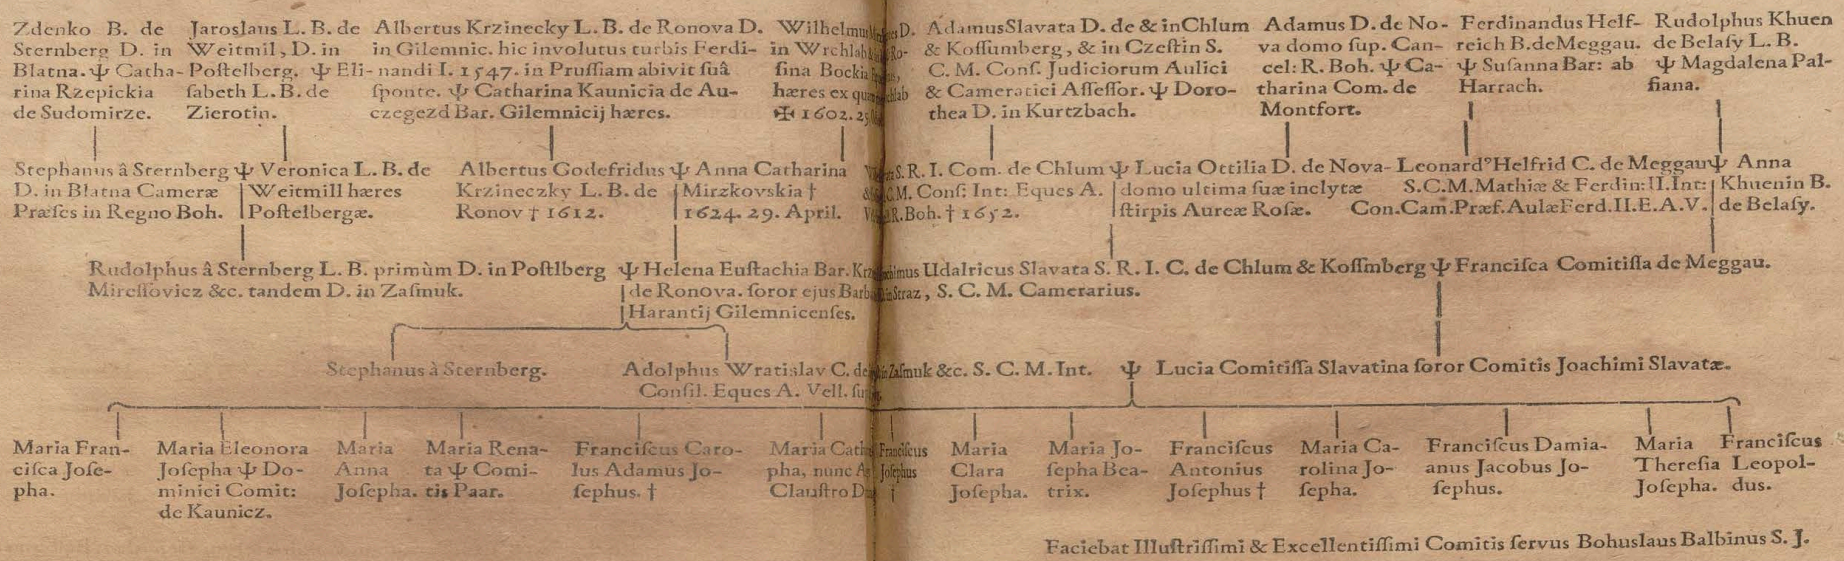 Zdenko B. de
Sternberg D. in
Blatna. Ψ Catha-
rina Rzepickia
de Sudomirze.
Jaroslaus L. B. de
Weitmil, D. in
Postelberg. Ψ Eli-
sabeth L. B. de
Zierotin.
Albertus Krzinecky L. B. de Ronova D.
in Gilemnic. hic involutus turbis Ferdi-
nandi I. 1547. in Prussiam abivit suâ
sponte. Ψ Catharina Kaunicia de Au-
czegezd Bar. Gilemnicij hæres.
D.
in Wrchlab
sina Bockia
hæres ex
✠ 1602.
Adamus Slavata D. de & in Chlum
& Kossumberg, & in Czestin S.
C. M. Cons. Judiciorum Aulici
& Cameratici Assessor. Ψ Doro-
thea D. in Kurtzbach.
Adamus D. de No-
va domo sup. Can-
cel: R. Boh. Ψ Ca-
tharina Com. de
Montfort.
Ferdinandus Helf-
reich B. de Meggau.
Ψ Susanna Bar: ab
Harrach.
Rudolphus Khuen
de Belasy L. B.
Ψ Magdalena Pal-
siana.
Stephanus â Sternberg Ψ Veronica L. B. de
D. in Blatna Cameræ Weitmill hæres
Præses in Regno Boh. Postelbergæ.
Albertus Godefridus Ψ Anna Catharina
Krzineczky L. B. de Mirzkovskia †
Ronov † 1612. 1624. 29. April.
S. R. I. Com. de Chlum Ψ Lucia Ottilia D. de Nova-
C. M. Cons: Int: Eques A. domo ultima suæ inclytæ
R. Boh. † 1652. stirpis Aureæ Rosæ.
Leonardꝰ Helfrid C. de Meggau Ψ Anna
S. C. M. Mathiæ & Ferdin: II. Int: Khuenin B.
Con. Cam. Præf. Aulæ Ferd. II. E. A. V. de Belasy.
Rudolphus â Sternberg L. B. primùm D. in Postlberg Ψ Helena Eustachia Bar.
Miressovicz &c. tandem D. in Zasmuk. de Ronova. soror ejus
Harantij Gilemnicenses.
Udalricus Slavata S. R. I. C. de Chlum & Kossmberg Ψ Francisca Comitissa de Meggau.
Straz, S. C. M. Camerarius.
Stephanus à Sternberg.
Adolphus Wratislav C. de Zasmuk &c. S. C. M. Int. Ψ Lucia Comitissa Slavatina soror Comitis Joachimi Slavatæ.
Consil. Eques A. Vell.
Maria Fran-
cisca Jose-
pha.
Maria Eleonora
Josepha Ψ Do-
minici Comit:
de Kaunicz.
Maria
Anna
Josepha.
Maria Rena-
ta Ψ Comi-
tis Paar.
Franciscus Caro-
lus Adamus Jo-
sephus. †
Maria
pha, nunc
Claustro
Franciscus
Josephus
†
Maria
Clara
Josepha.
Maria Jo-
sepha Bea-
trix.
Franciscus
Antonius
Josephus †
Maria Ca-
rolina Jo-
sepha.
Franciscus Damia-
anus Jacobus Jo-
sephus.
Maria
Theresia
Josepha.
Franciscus
Leopol-
dus.
Faciebat Illustrissimi & Excellentissimi Comitis servus Bohuslaus Balbinus S. J.